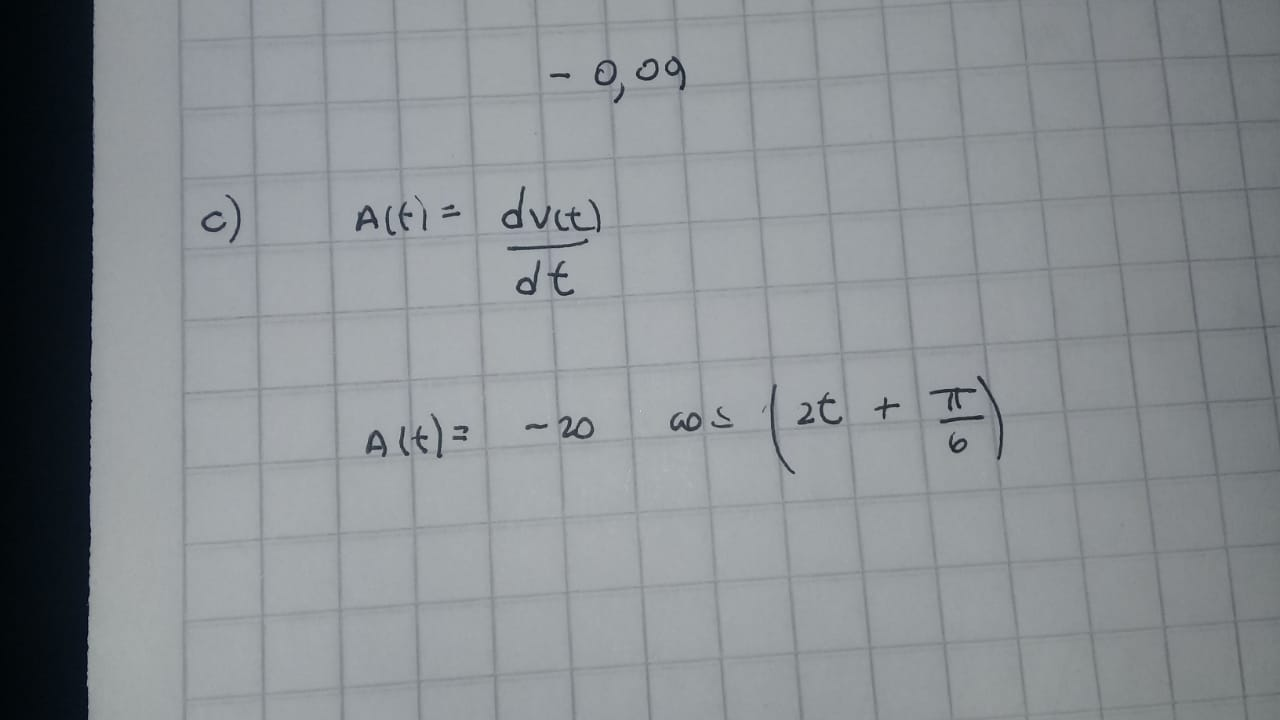 - 0,09
c) A(t) = dv(t)
dt
A(t) = -20 cos (2t + π/6)